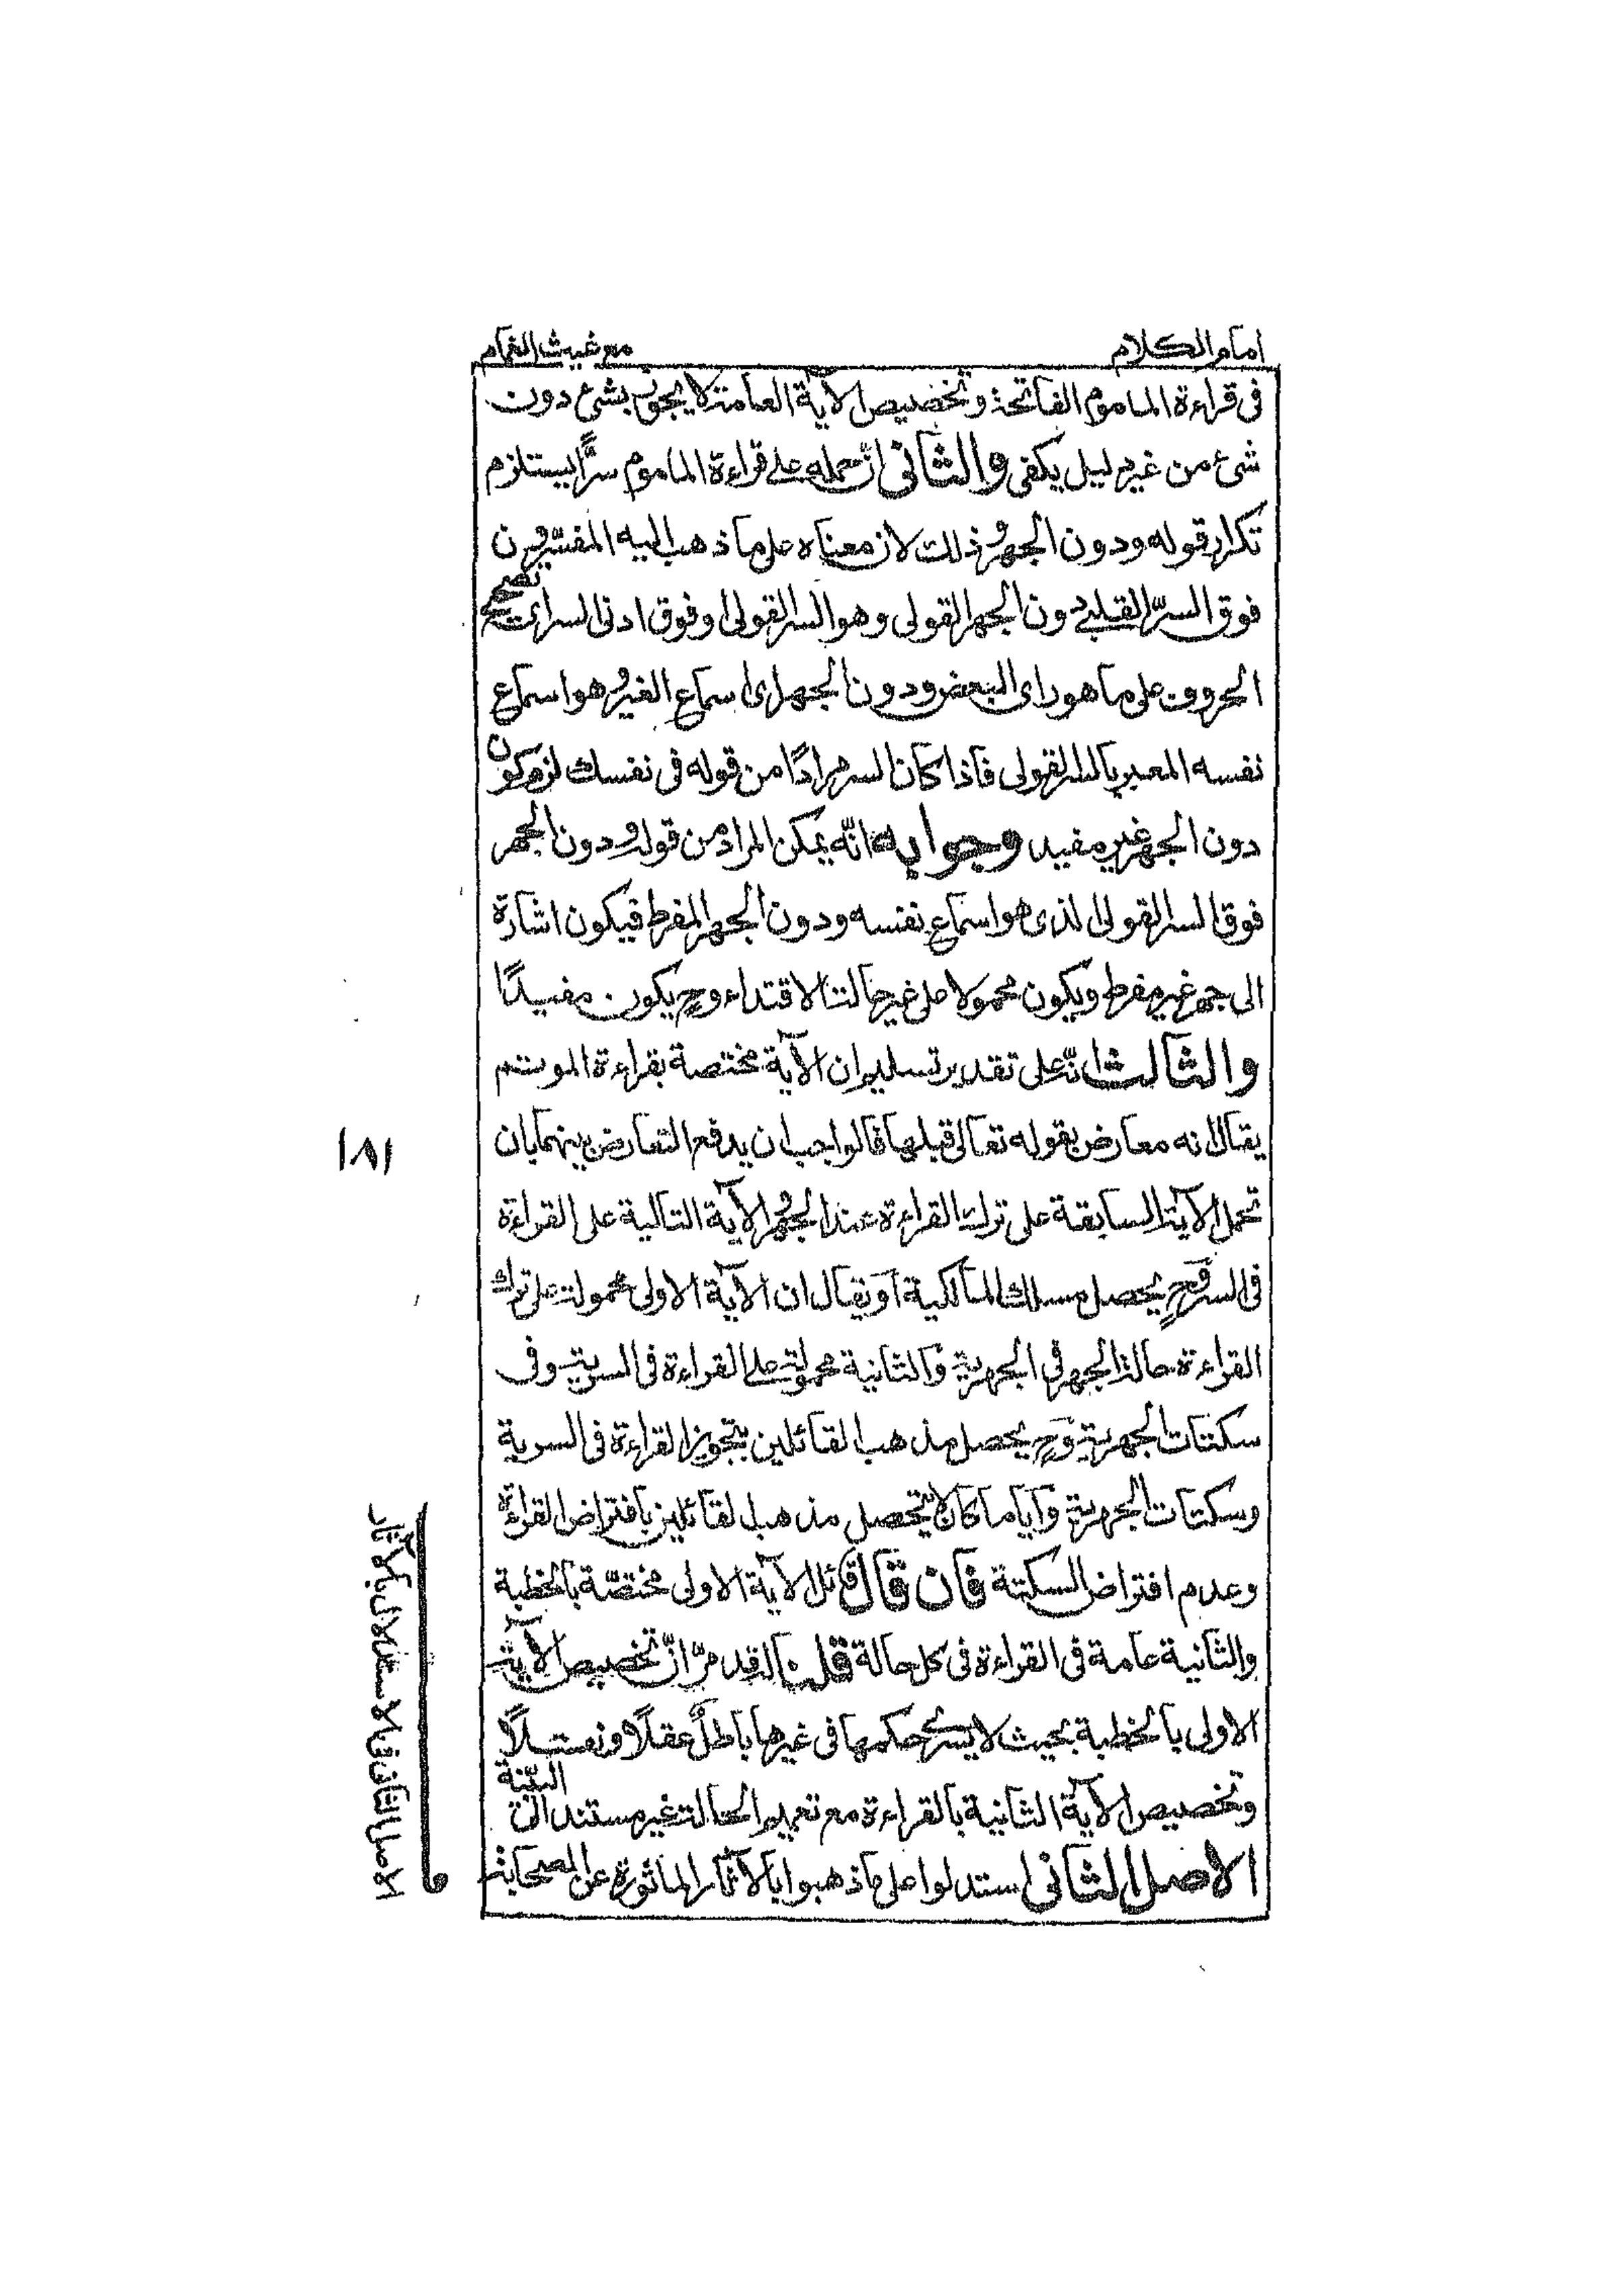 امام الكلام
مع غيث الغمام
فى قراءة الماموم الفاتحة وتخصيص الآية العامة لا يجوز بشئ دون
شئ من غير دليل يكفى والثانى ان حمله على قراءة الماموم سرًّا يستلزم
تكرار قوله ودون الجهر وذلك لان معناه على ما ذهب اليه المفسرون
فوق السرّ القلبى دون الجهر القولى وهو السر القولى او فوق ادنى السر اى تصحيح
الحروف على ما هو راى البعض ودون الجهر اى اسماع الغير وهو اسماع
نفسه المعبر بالسر القولى فاذا كان السر مرادًا من قوله فى نفسك لزم كون
دون الجهر غير مفيد وجوابه انّه يمكن المراد من قوله ودون الجهر
فوق السر القولى الذى هو اسماع نفسه ودون الجهر المفرط فيكون اشارة
الى جهر غير مفرط ويكون محمولا على غير حالة الاقتداء وح يكون مفيدًا
والثالث انّه على تقدير تسليم ان الآية مختصة بقراءة الموتم
يقال انه معارض بقوله تعالى قبلها فالواجب ان يدفع التعارض بينهما بان
تحمل الآية السابقة على ترك القراءة عند الجهر والآية التالية على القراءة
فى السر فح يحصل مسلك المالكية او يقال ان الآية الاولى محمولة على ترك
القراءة حالة الجهر فى الجهرية والثانية محمولة على القراءة فى السرية وفى
سكتات الجهرية وح يحصل مذهب القائلين بتجويز القراءة فى السرية
وسكتات الجهرية وايا ما كان لا يحصل مذهب القائلين بافتراض القراءة
وعدم افتراض السكتة فان قال قائل الآية الاولى مختصّة بالخطبة
والثانية عامة فى القراءة فى كل حالة قلنا لقد مرّ انّ تخصيص الآية
الاولى بالخطبة بحيث لا يسرى حكمها فى غيرها باطلٌ عقلًا ونقلًا
وتخصيص الآية الثانية بالقراءة مع تعميم الحالة غير مستند البتّة
الاصل الثانى استدلوا على ما ذهبوا بالآثار الماثورة عن الصحابة
١٨١
الاصل الثانى فى الاستدلال بالآثار